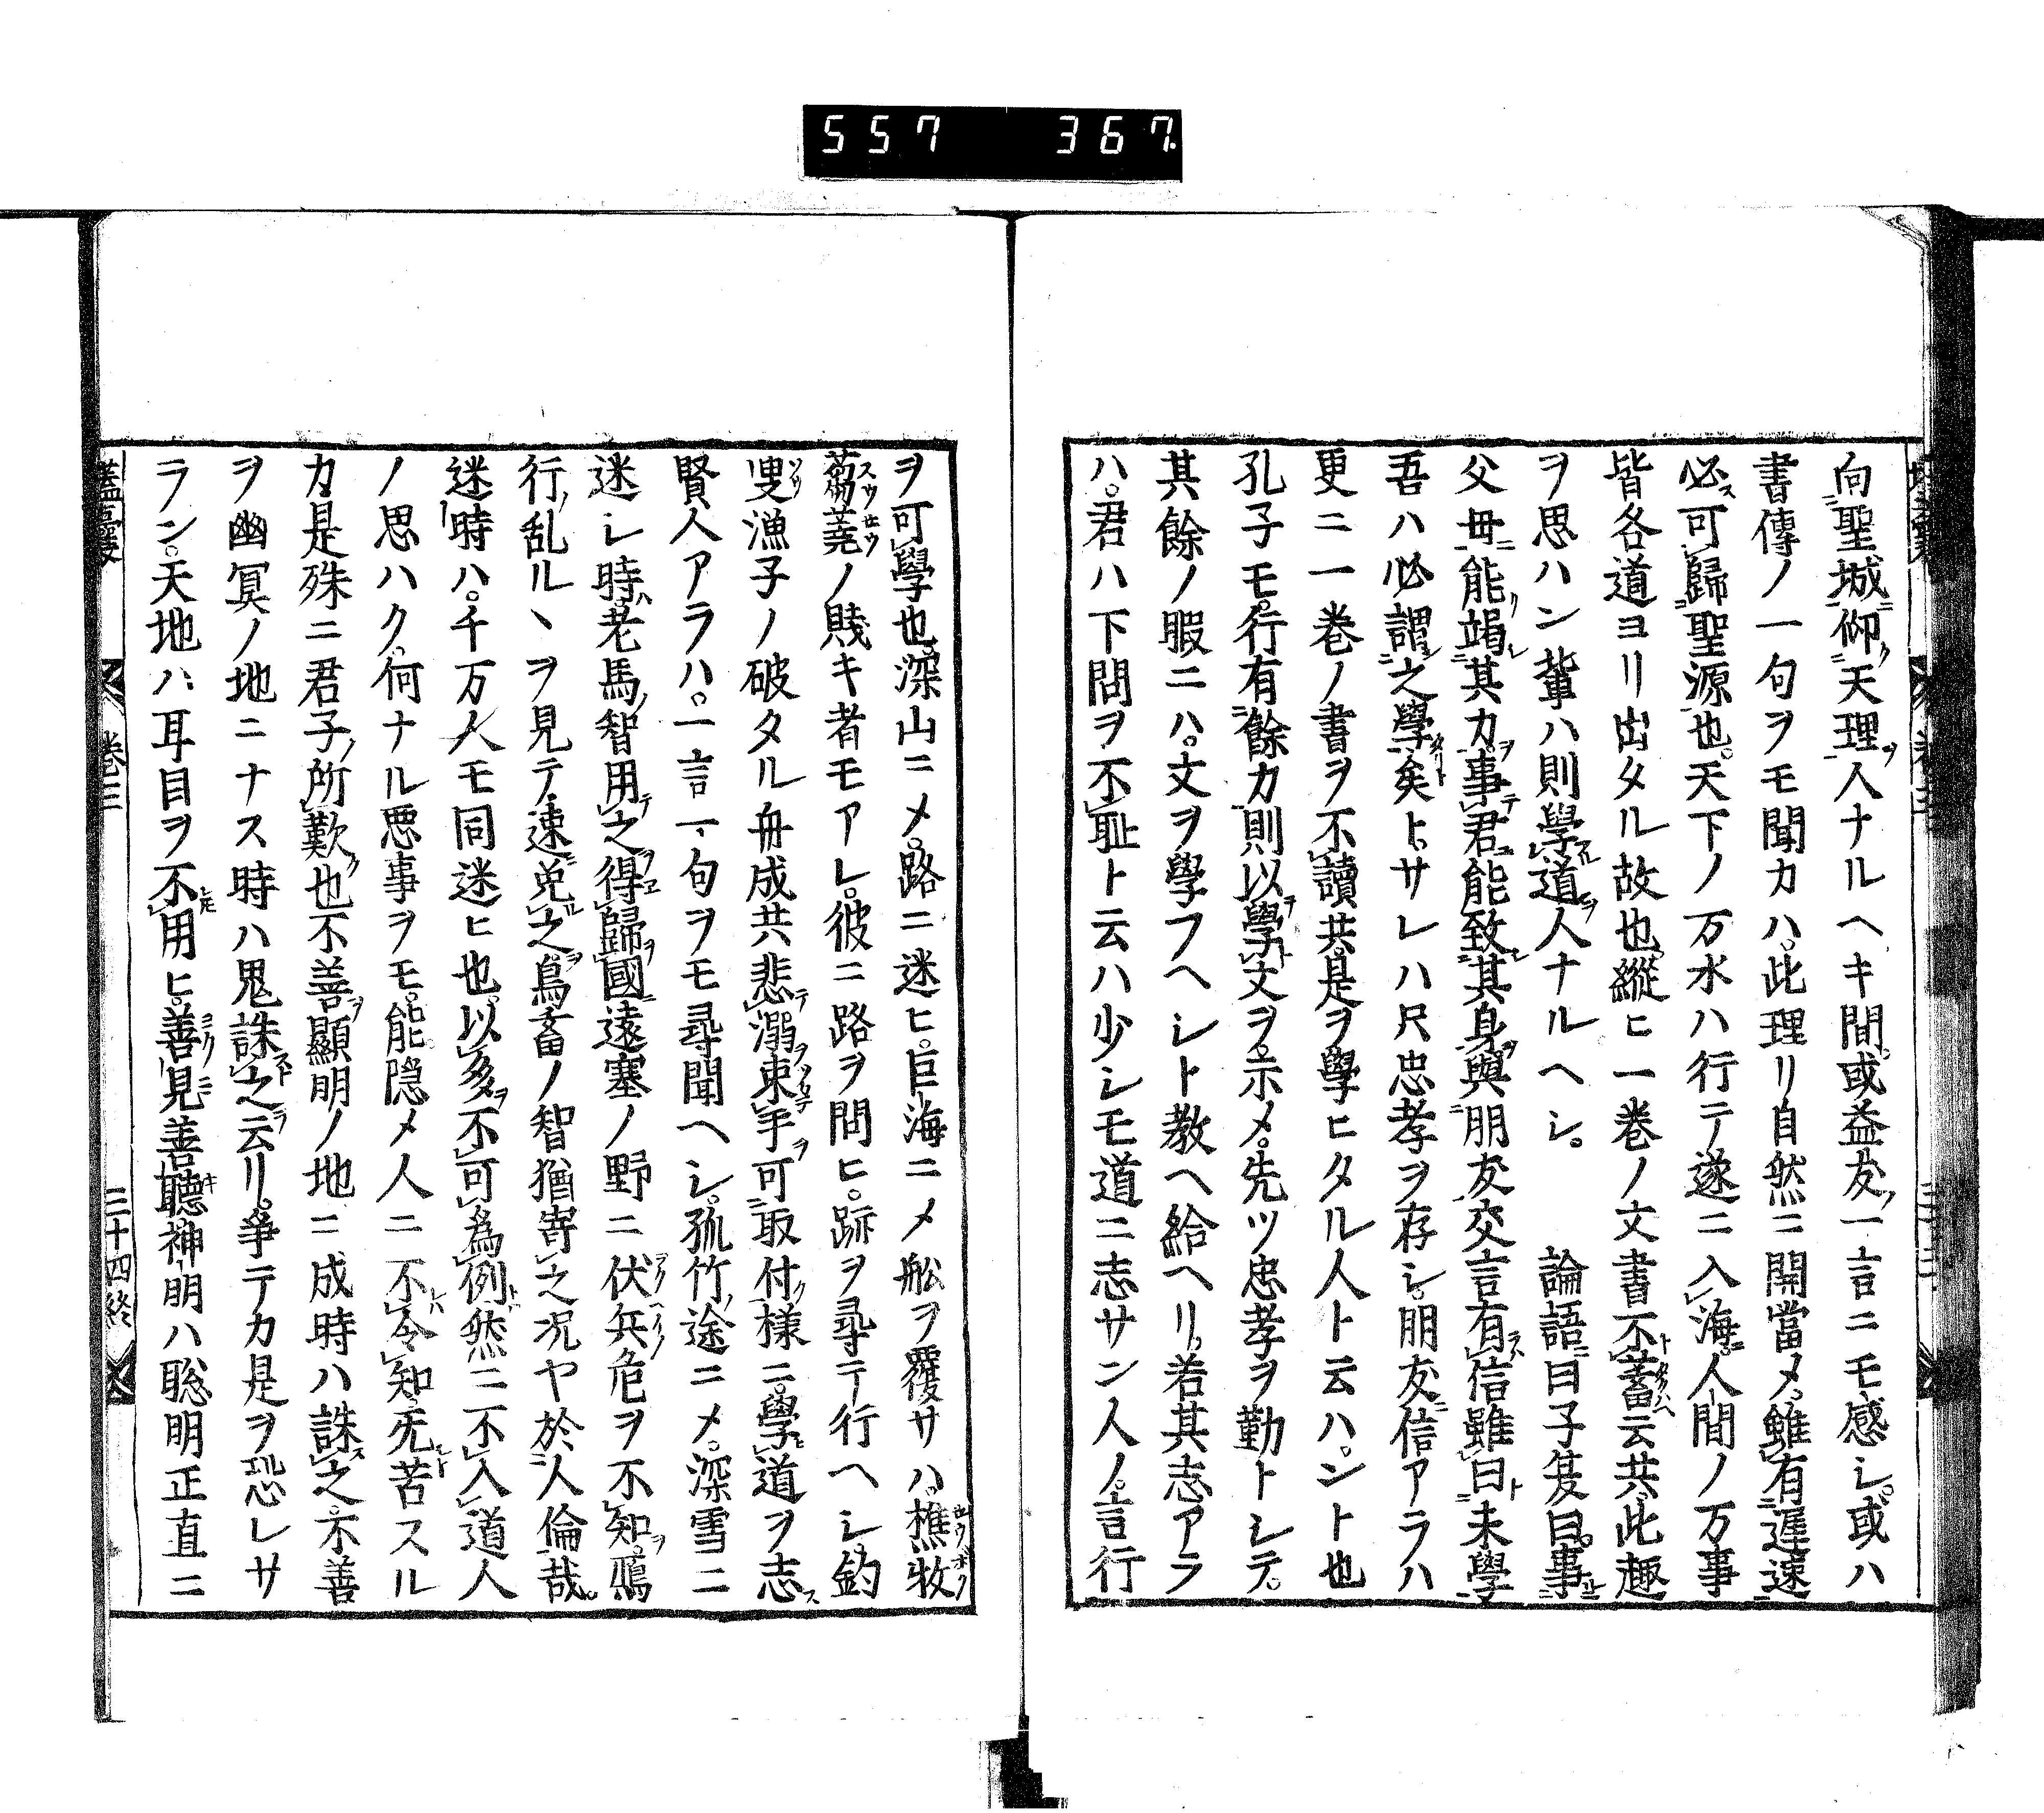 557 367
向聖城仰天理人ナルヘキ間或益友一言ニモ感シ或ハ
書傳ノ一句ヲモ聞カハ此理リ自然ニ開當メ雖有遲速
必可歸聖源也天下ノ万水ハ行テ遂ニ入海人間ノ万事
皆各道ヨリ出タル故也縱ヒ一巻ノ文書不蓄云共此趣
ヲ思ハン輩ハ則學道人ナルヘシ 論語曰子夏曰事
父毋能竭其力事君能致其身與朋友交言有信雖曰未學
吾ハ必謂之學矣トサレハ尺忠孝ヲ存シ朋友信アラハ
更ニ一巻ノ書ヲ不讀共是ヲ學ヒタル人ト云ハント也
孔子モ行有餘力則以學文ヲ示メ先ツ忠孝ヲ勤トシテ
其餘ノ暇ニハ文ヲ學フヘシト教ヘ給ヘリ若其志アラ
ハ君ハ下問ヲ不耻ト云ハ少シモ道ニ志サン人ノ言行
ヲ可學也深山ニメ路ニ迷ヒ巨海ニメ舩ヲ覆サハ樵牧
蒭蕘ノ賤キ者モアレ彼ニ路ヲ問ヒ跡ヲ尋テ行ヘシ釣
叟漁子ノ破タル舟成共悲溺束手可取付様ニ學道ヲ志
賢人アラハ一言一句ヲモ尋聞ヘシ孤竹途ニメ深雪ニ
迷レ時老馬智用之得歸國遠塞ノ野ニ伏兵危ヲ不知鴈
行乱ルヽヲ見テ速免之鳥畜ノ智猶寄之况ヤ於人倫哉
迷時ハ千万人モ同迷ヒ也以多不可為例然ニ不入道人
ノ思ハク何ナル悪事ヲモ能隠メ人ニ不令知无苦スル
カ是殊ニ君子所歎也不善顯明ノ地ニ成時ハ誅之不善
ヲ幽冥ノ地ニナス時ハ鬼誅之云リ爭テカ是ヲ恐レサ
ラン天地ハ耳目ヲ不用ヒ善見善聽神明ハ聡明正直ニ
巻三
三十四終